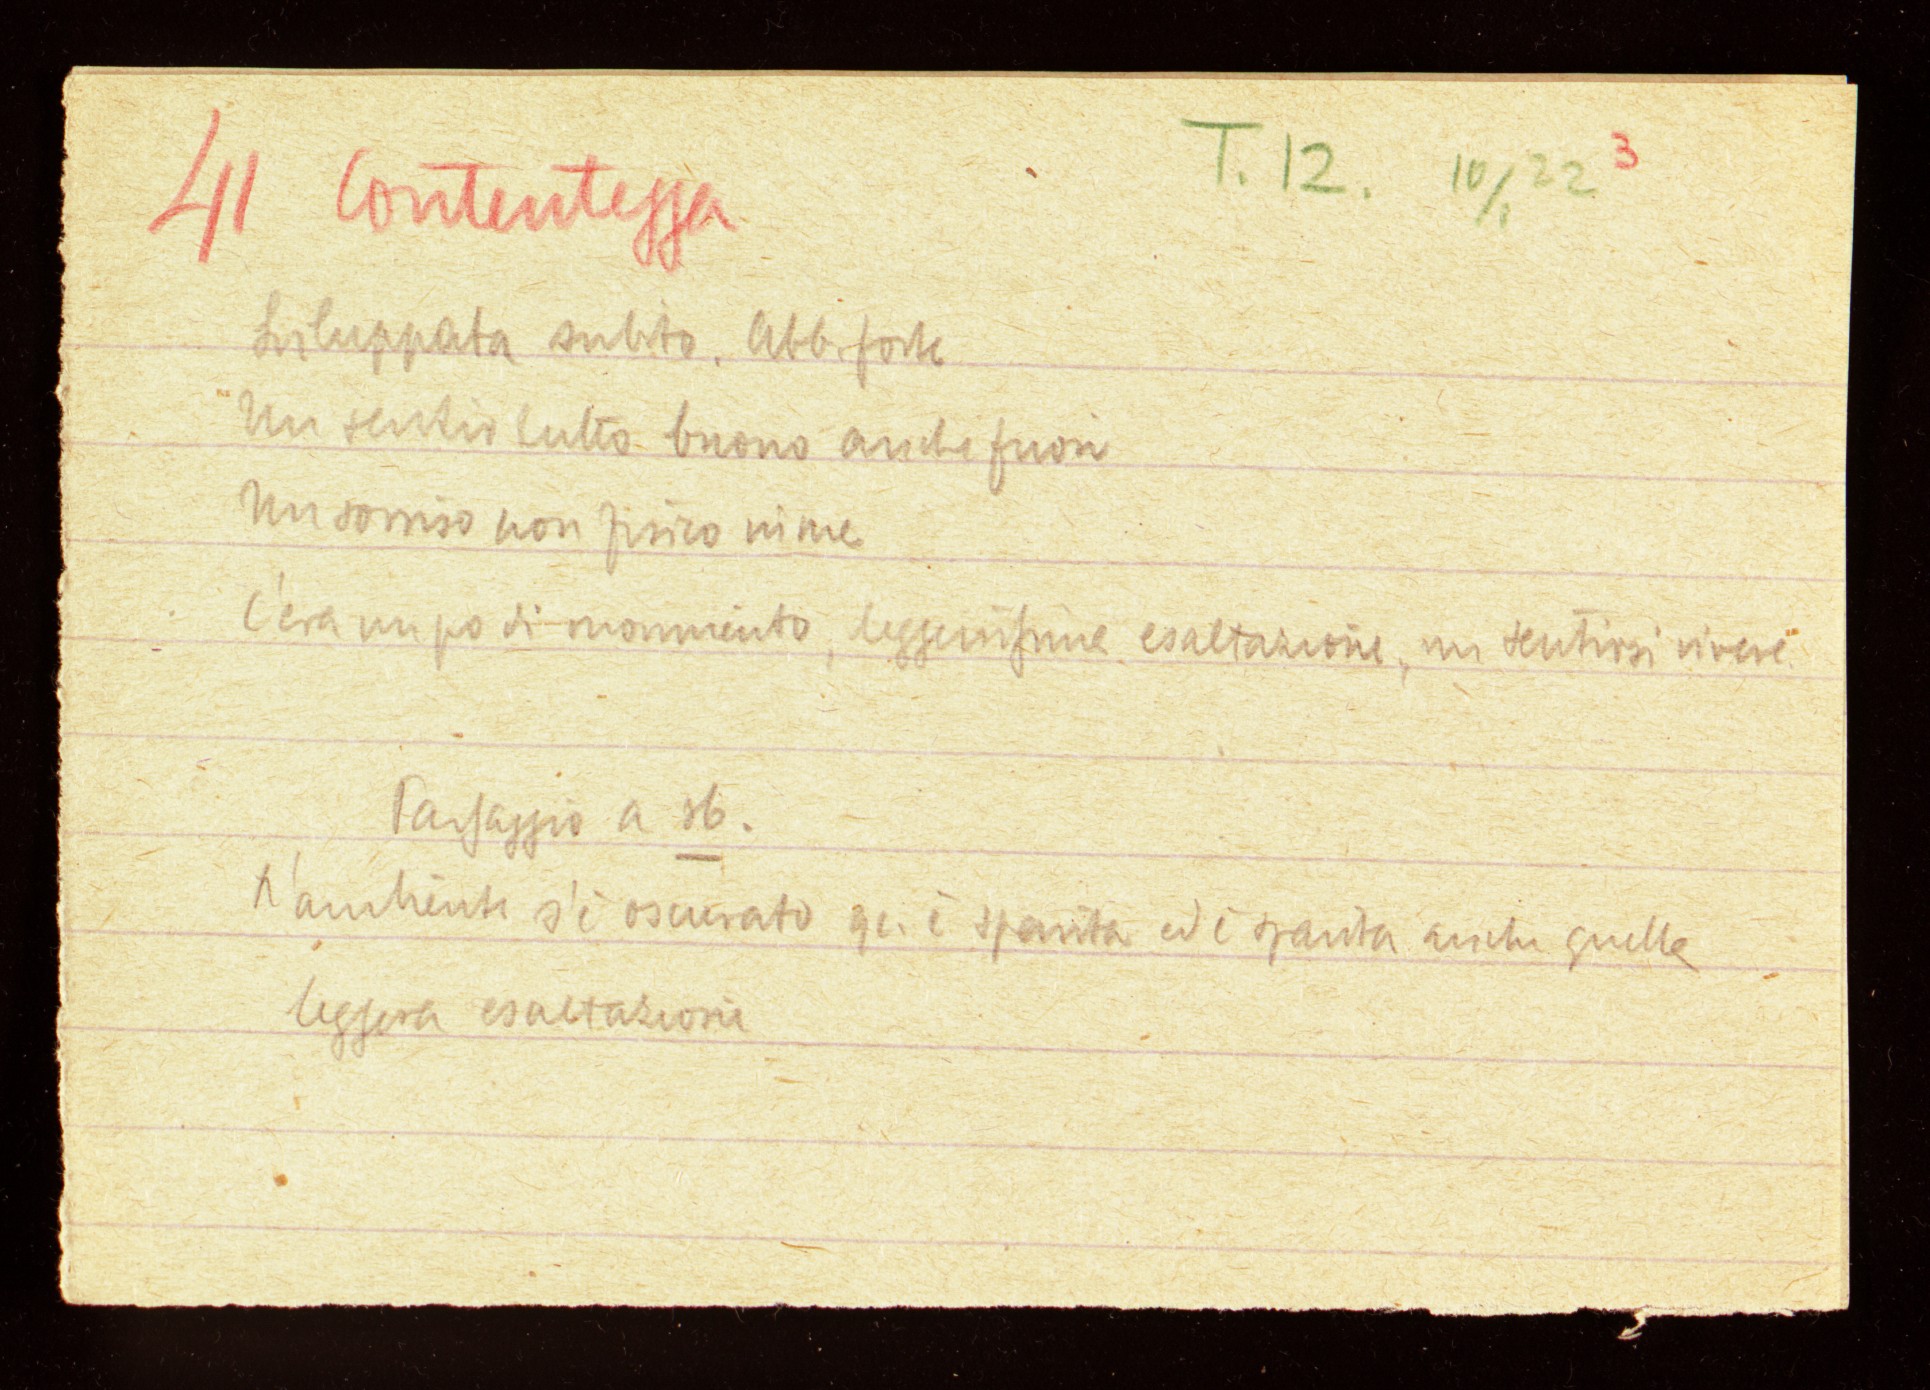 41 Contentezza T. 12. 10/1 22 3
Sviluppata subito. Abb. forte
"Un sentir tutto buono anche fuori
Un sorriso non fisico in me
C'era un po di movimento, leggerissima esaltazione, un sentirsi vivere"
Passaggio a sb.
L'ambiente s'è oscurato qc. è sparita ed è sparita anche quella
leggera esaltazione